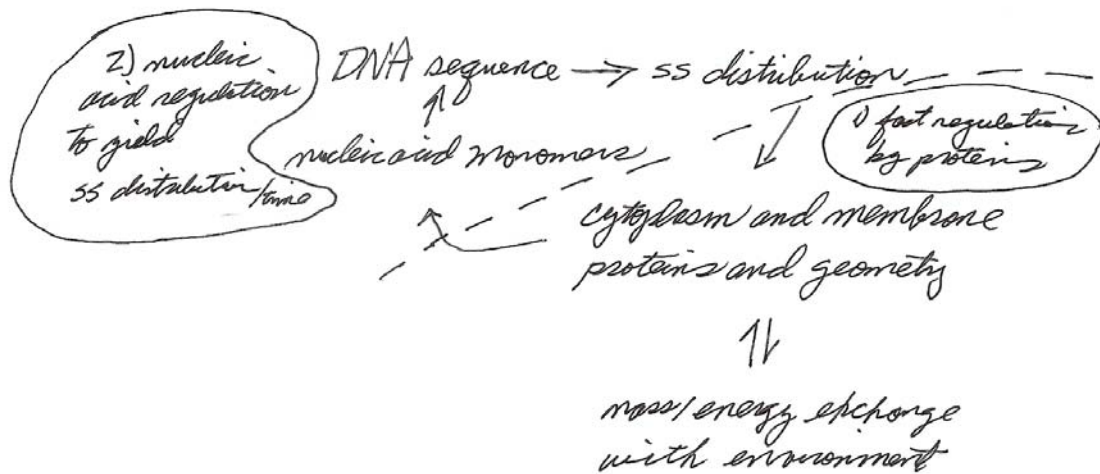 2) nucleic
acid regulation
to yield
ss distribution/time
DNA sequence → ss distribution
nucleic acid monomers
1) fast regulation
by proteins
cytoplasm and membrane
proteins and geometry
mass/energy exchange
with environment